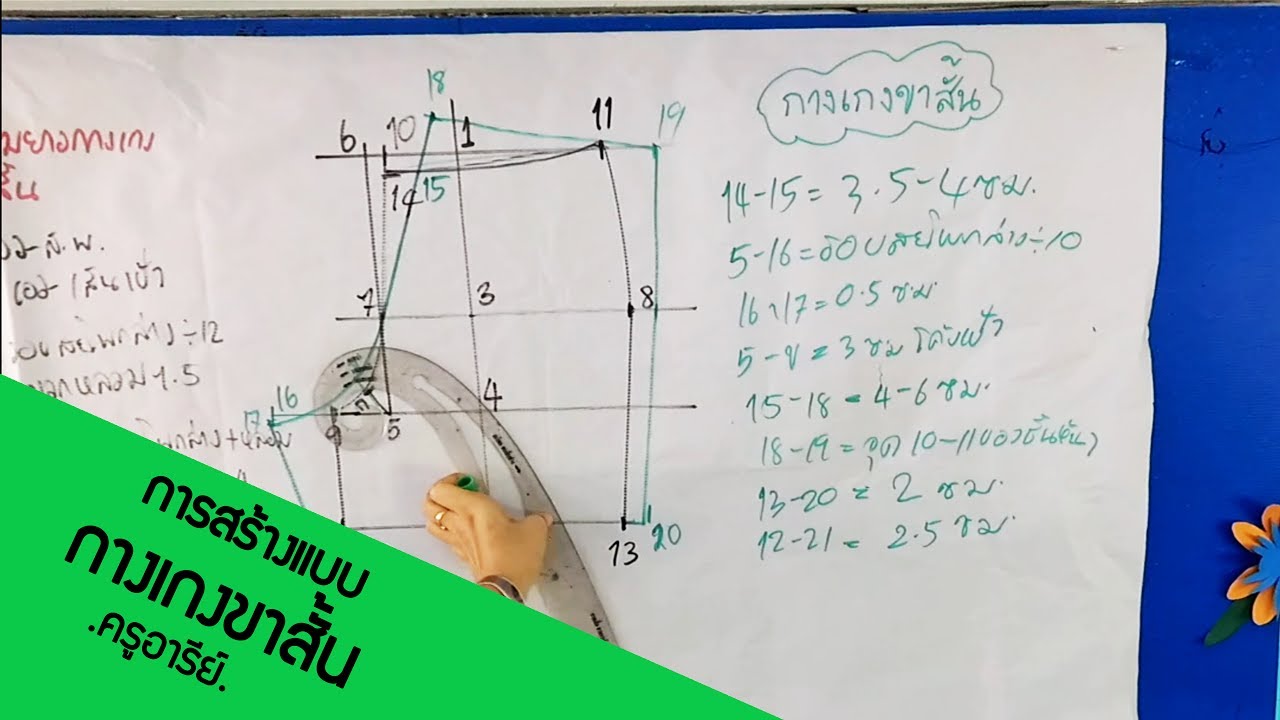 กางเกงขาสั้น
14-15 = 3.5-4 ซม.
5-16 = รอบสะโพกล่าง÷10
16-17 = 0.5 ซม.
5-ข = 3 ซม โค้งเป้า
15-18 = 4-6 ซม.
18-19 = จุด 10-11 ของชิ้นหน้า
13-20 = 2 ซม.
12-21 = 2.5 ซม.
18
6 10 1 11 19
14 15
7 3 8
17 16 9 5 4
13 20
มยาวกางเกง
เอว-ส.พ.
เอว-เส้นเป้า
รอบสะโพกล่าง÷12
1.5
การสร้างแบบ
กางเกงขาสั้น
.ครูอารีย์.